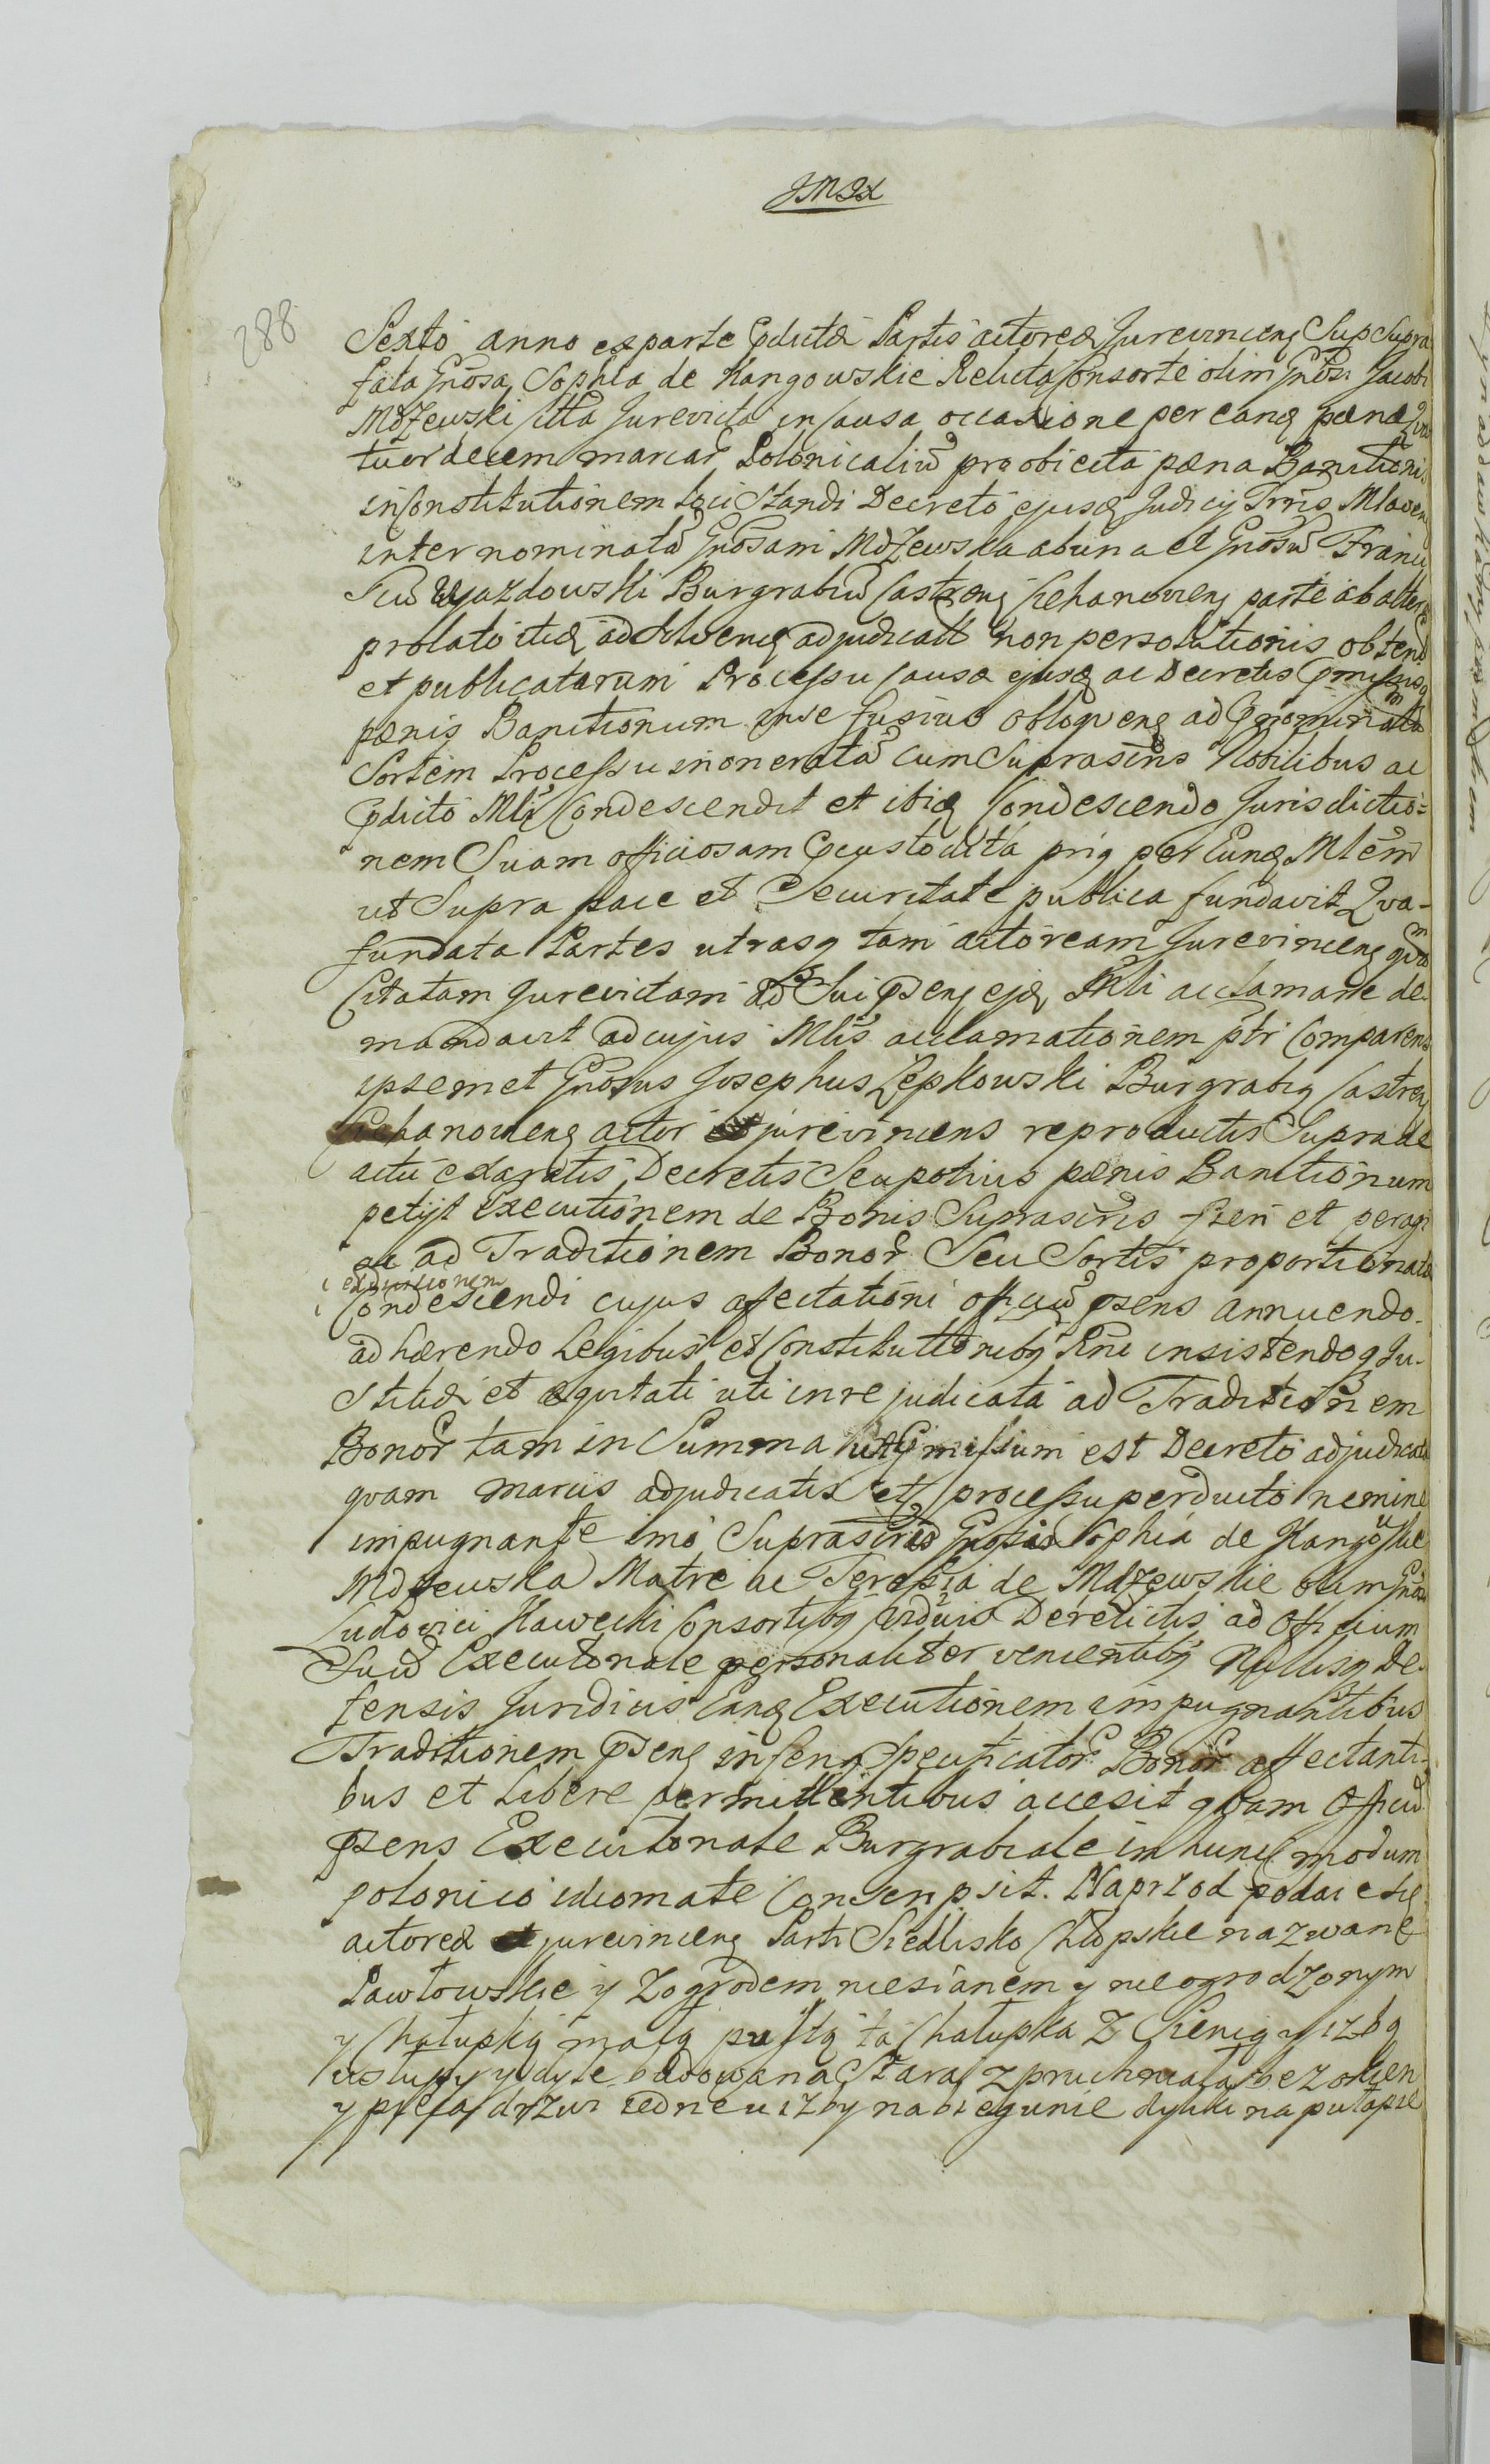 JMJX
288
Sexto anno ex parte Pdictæ Partis actoreæ Jurevincenς Sup Supra
fata Gnosa Sophia de Kangowskie Relicta Consorte olim Gnosi Jacobi
Mdzewski ctta Jurevicta in causa occasione per eand pænæ
tuordecem marcar Polonicaliu pro obiecta pæna Banitionis
in Constitutionem loci Standi Decreto ejusd Judicij Trris Mlaven
inter nominata Gnosam Mdzewska ab una et Gnosu Franci
scu Uyazdowski Burgrabiu Castren Ciechanovien parte ab altera
prolato adjudicat non persolutionis obtent
et publicatarum Processu causæ ejusd ac Decretis Pmissisq
pænis Banitionum in se fusius obloqvenς ad Pnominata
Sortem Processu inonerata cum Suprascris Nobilibus ac
Pdicto Mli Condescendit et ibid Condescendo Jurisdictio=
nem Suam officiosam Pcustodita prig per Eund Mlem
ut Supra pace et Securitate publica fundavit Qva-
fundata Partes utrasq tam actoream Jurevincenς qvam
Citatam Jurevictam ad Sui Psenς ejd Mli acclamare de
mandavit ad cujus Mlis acclamationem ptr Comparens
ipsemet Gnosus Josephus Zępkowski Burgrabig Castren
Ciechanovienς actor et jurevincens reproductis Suprade
actu exaratis Decretis Seu potius pænis Banitionum
petijt Executionem de Bonis Suprascris fieri et peragi
ac ad Traditionem Bonor Seu Sortis proportionata
exdivisionem
Condescendi cujus afectationi officiu Psens annuendo.
adhærendo Legibus et Constitutionibq Rni insistendoq Ju-
stitiæ et æqvitati uti in re judicata ad Traditionem
Bonor tam in Summa uti Pmissum est Decreto adjudicata
qvam marcis adjudicatis et processu perducto nemine
impugnante imo Suprascris Gnosis Sophia de Kangowskie
Mdzewska Matre ac Teresia de Mdzewskie olim Gnosi
Ludovici Kawecki Consortibq viduis Derelictis ad Officium
Suu Executoriale personaliter venientibq Nullisq De
fensis Juridicis Eand Executionem impugnantibus
Traditionem Psenς infenς Specificator Bonor affectanti-
bus et Libere permittentibus accesit qvam Officiu
Psens Executoriale Burgrabiale in hunc modum
polonico idiomate Conscripsit. Naprzod podaie się
actoreæ et jurevincenς Parti Siedlisko Chłopskie nazwane
Pawłowskie y Zogrodem niesianem y nieogrodzonym
y Chałupką małą pustą ta Chałupka Z Sienią y izbą
wstupy y dyle budowana Stara zpruchniała bez okien
y pieca drzwi iedne u izby na biegunie dylki na pułapie